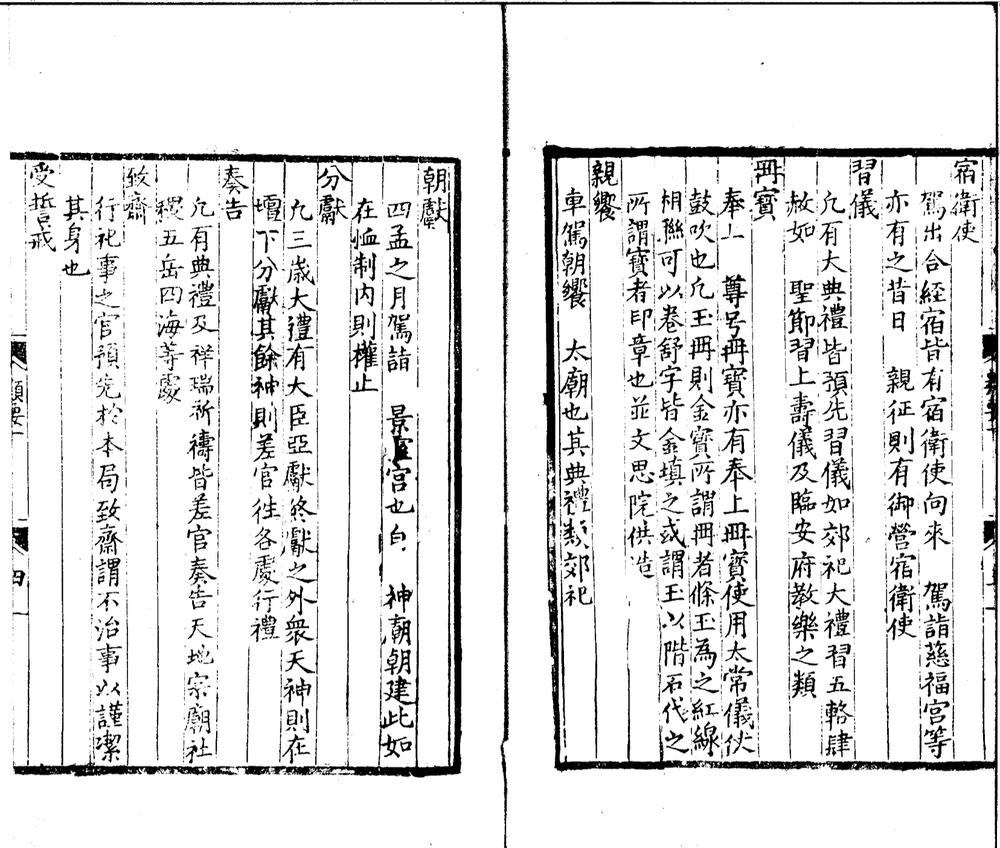 宿衛使
駕出合經宿皆有宿衛使向來　駕詣慈福宮等
亦有之昔日　親征則有御營宿衛使
習儀
凢有大典禮皆預先習儀如郊祀大禮習五輅肆
赦如　聖節習上壽儀及臨安府教樂之類
冊寶
奉上　尊号冊寶亦有奉上冊寶使用太常儀仗
鼓吹也凢玉冊則金寶所謂冊者條玉為之紅線
相聮可以卷舒字皆金填之或謂玉以階石代之
所謂寶者印章也並文思院供造
親饗
車駕朝饗　太廟也其典禮𩔖郊祀
朝獻
四孟之月駕詣　景靈宮也自　神廟朝建此如
在恤制内則權止
分獻
凢三歳大禮有大臣亞獻終獻之外衆天神則在
壇下分獻其餘神則差官往各處行禮
奏告
凢有典禮及祥瑞祈禱皆差官奏告天地宗廟社
稷五岳四海等處
致齋
行祀事之官預先於本局致齋謂不治事以謹潔
其身也
受誓戒
類要一
四